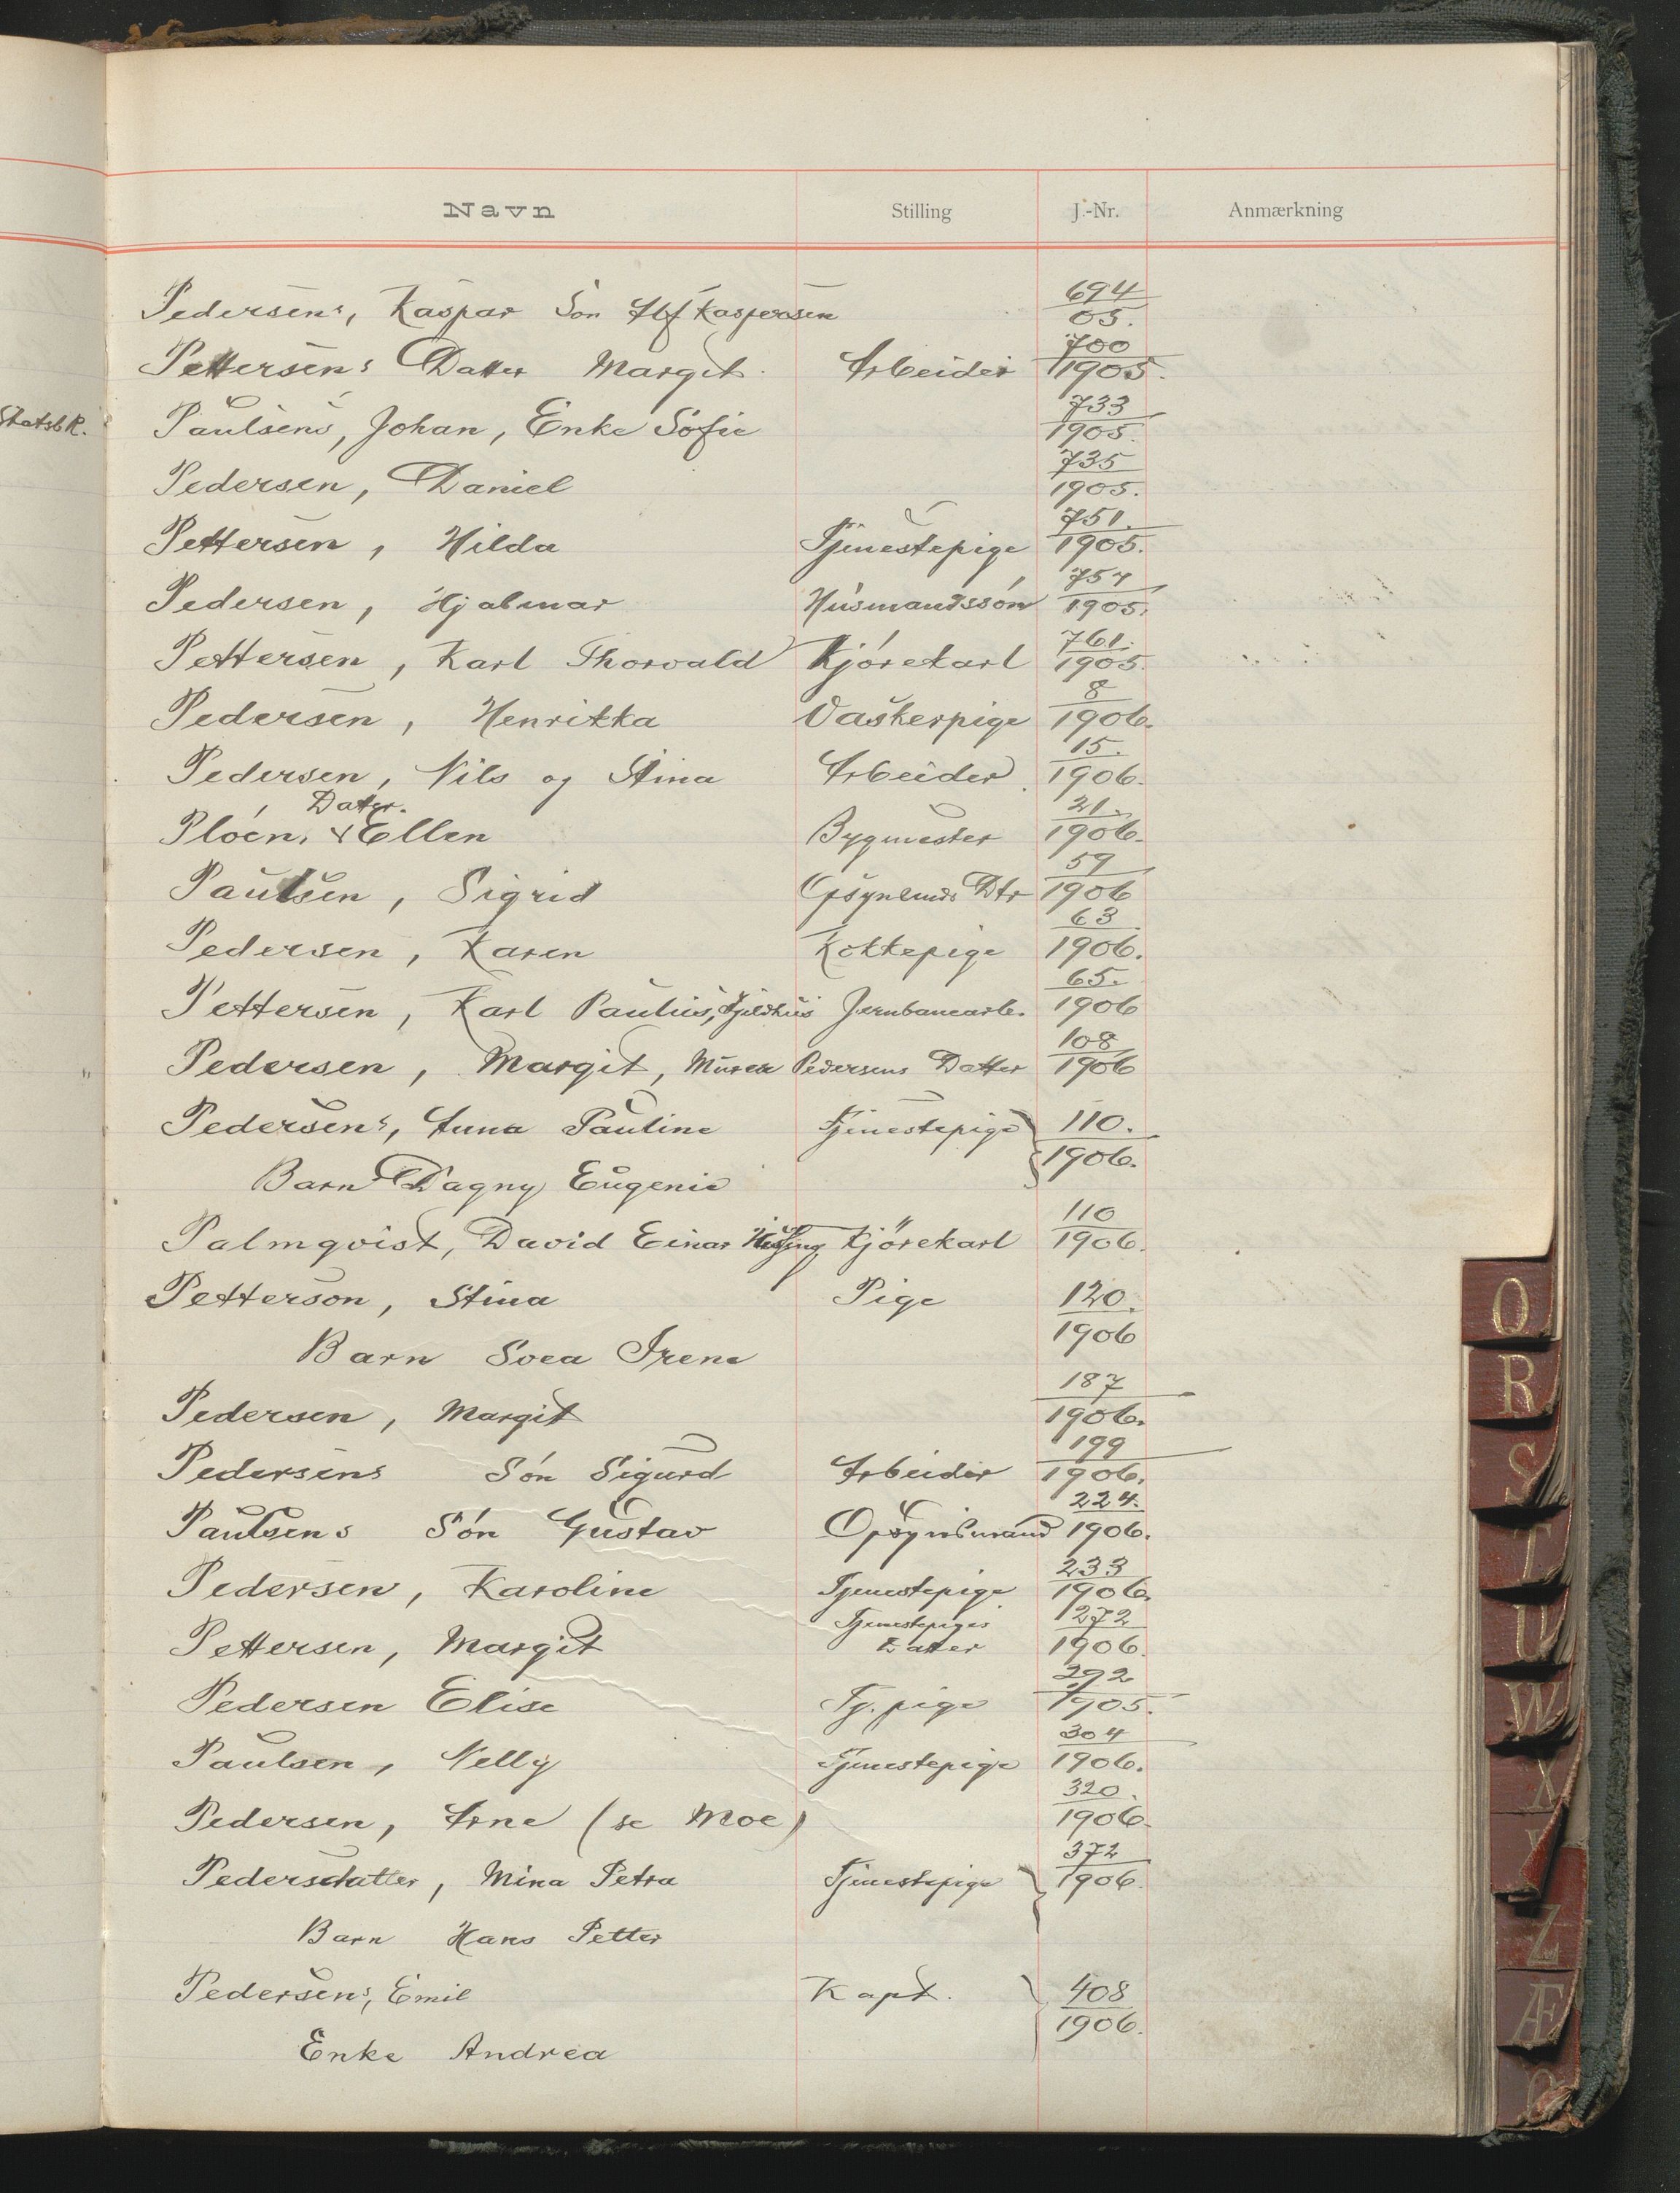 Navn Stilling J.-Nr. Anmærkning
Pedersens, Kaspar Søn Alf Kaspersen 694/05.
Pettersens Datter Margit. Arbeider 700/1905.
StatsbK.
Paulsens, Johan, Enke Sofie 733/1905.
Pedersen, Daniel 735/1905.
Pettersen, Hilda Tjenestepige 751./1905.
Pedersen, Hjalmar Husmandssón 754/1905.
Pettersen, Karl Thorvald Kjórekarl 761./1905.
Pedersen, Henrikka Vaskerpige 8/1906.
Pedersen, Nils og Stina Arbeider 15./1906.
Datter.
Plóen, Ellen Bygmester 21./1906.
Paulsen, Sigrid Opsynsmds Dtr 59/1906
Pedersen, Karen Kokkepige 63/1906.
Pettersen, Karl Paulius, Jernbanearb. 65./1906
Pedersen, Margit, Murer Pedersens Datter 108/1906
Pedersens, Anna Pauline Tjenestepige 110./1906.
Barn Dagny Eugenie
Palmqvist, David Einar Kjörekarl 110/1906.
Petterson, Stina Pige 120./1906
Barn Svea Irene
Pedersen, Margit 187/1906.
Pedersens Són Sigurd Arbeider 199/1906.
Paulsens Són Gustav Opsynsmand 224./1906.
Pedersen, Karoline Tjenestepige 233/1906.
Pettersen, Margit Tjenestepiges Datter 272/1906.
Pedersen Elise Tj. pige 292/1905.
Paulsen, Nelly Tjenestepige 304/1906.
Pedersen, Arne (se Moe) 320./1906.
Pedersdatter, Mina Petra Tjenestepige 372/1906.
Barn Hans Petter
Pedersens, Emil Kapt. 408/1906.
Enke Andrea
O
R
S
T
U
W
X
Y
Z
Æ
Ø